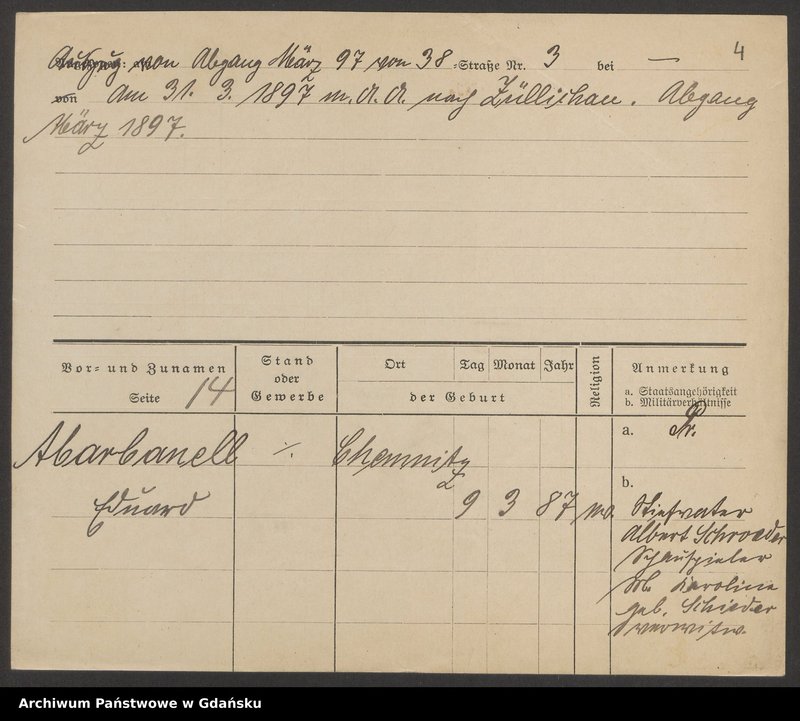 4
Auszug von Abgang März 97 von 38 -Straße Nr. 3 bei —
von Am 31. 3. 1897 m. A. A. nach Züllichau. Abgang
März 1897.
Vor- und Zunamen
Seite 14
Stand
oder
Gewerbe
Ort Tag Monat Jahr
der Geburt
Religion
Anmerkung
a. Staatsangehörigkeit
b. Militärverhältnisse
a. Pr.
Abarbanell ./. Chemnitz
b.
Eduard 9 3 87 Stiefvater
Albert Schroeder
Schauspieler
M. Karoline
geb. Schieder
verwitw.
Archiwum Państwowe w Gdańsku